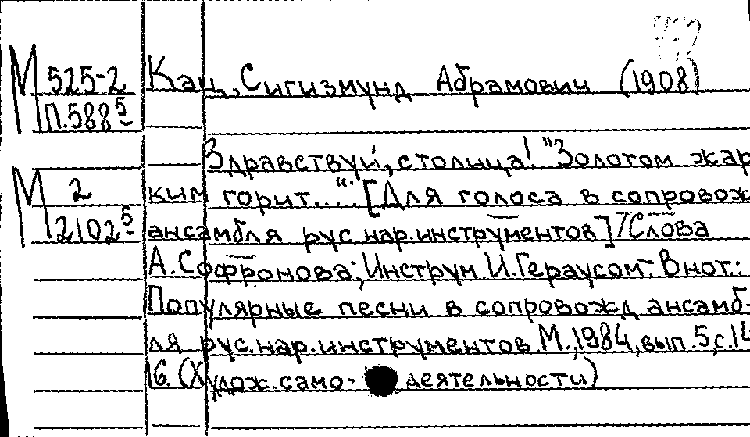 М 525-2 Кац, Сигизмунд Абрамович (1908)
П.588⁵
Здравствуй, столица! "Золотом жар
М 2 ким горит...". [Для голоса в сопровож
2102⁵ ансамбля рус.нар.инструментов]/Слова
А.Софронова; Инструм. И.Гераусом- В нот.:
Популярные песни в сопровожд ансамб-
ля рус.нар.инструментов. М.,1984, вып.5, с.14
16. (Худож.само- деятельности)